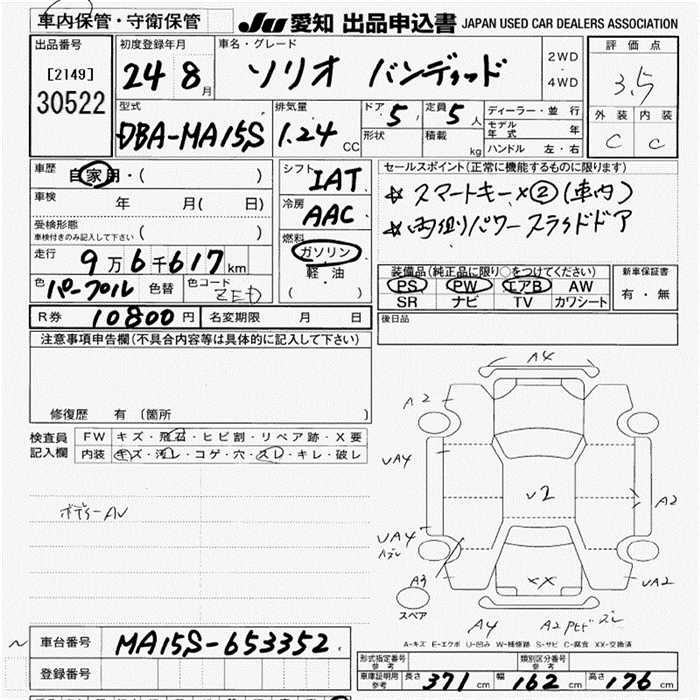 車内保管・守衛保管
JU 愛知 出品申込書 JAPAN USED CAR DEALERS ASSOCIATION
出品番号
[2149]
30522
初度登録年月
24 8月
車名・グレード
ソリオ バンディット
2WD
・
4WD
評価点
3.5
外装 内装
C C
型式
DBA-MA15S
排気量
1.24 CC
ドア 5
形状
定員 5人
積載 kg
ディーラー・並行
モデル年式 年
ハンドル 左・右
車歴
自家用・( )
車検 年 月( 日)
受検形態
車検付きのみ記入して下さい ( )
走行
9万6千617km
色 パープル 色替 色コード ZED
シフト
IAT
冷房
AAC
燃料
ガソリン
軽・油
( )
セールスポイント(正常に機能するものに限ります)
☆ スマートキー×②(車内)
☆ 両側パワースライドドア
装備品(純正品に限り○をつけてください)
PS PW エアB AW
SR ナビ TV カワシート
新車保証書
有・無
R券 10800円 名変期限 月 日
後日品
注意事項申告欄(不具合内容等は具体的に記入して下さい)
修復歴 有 (箇所 )
検査員記入欄
FW キズ・飛石・ヒビ割・リペア跡・X要
内装 キズ・汚レ・コゲ・穴・スレ・キレ・破レ
ボデーAU
A4
A2
UA4
U2
A2
UA4
A3
XX
UA2
スペア
A4
A-キズ E-エクボ U-凹み W-補修跡 S-サビ C-腐食 XX-交換済
車台番号 MA15S-653352
登録番号
形式指定番号 参考
類別区分番号 参考
車庫証明用 参考 長さ 371cm 幅 162cm 高さ 176cm